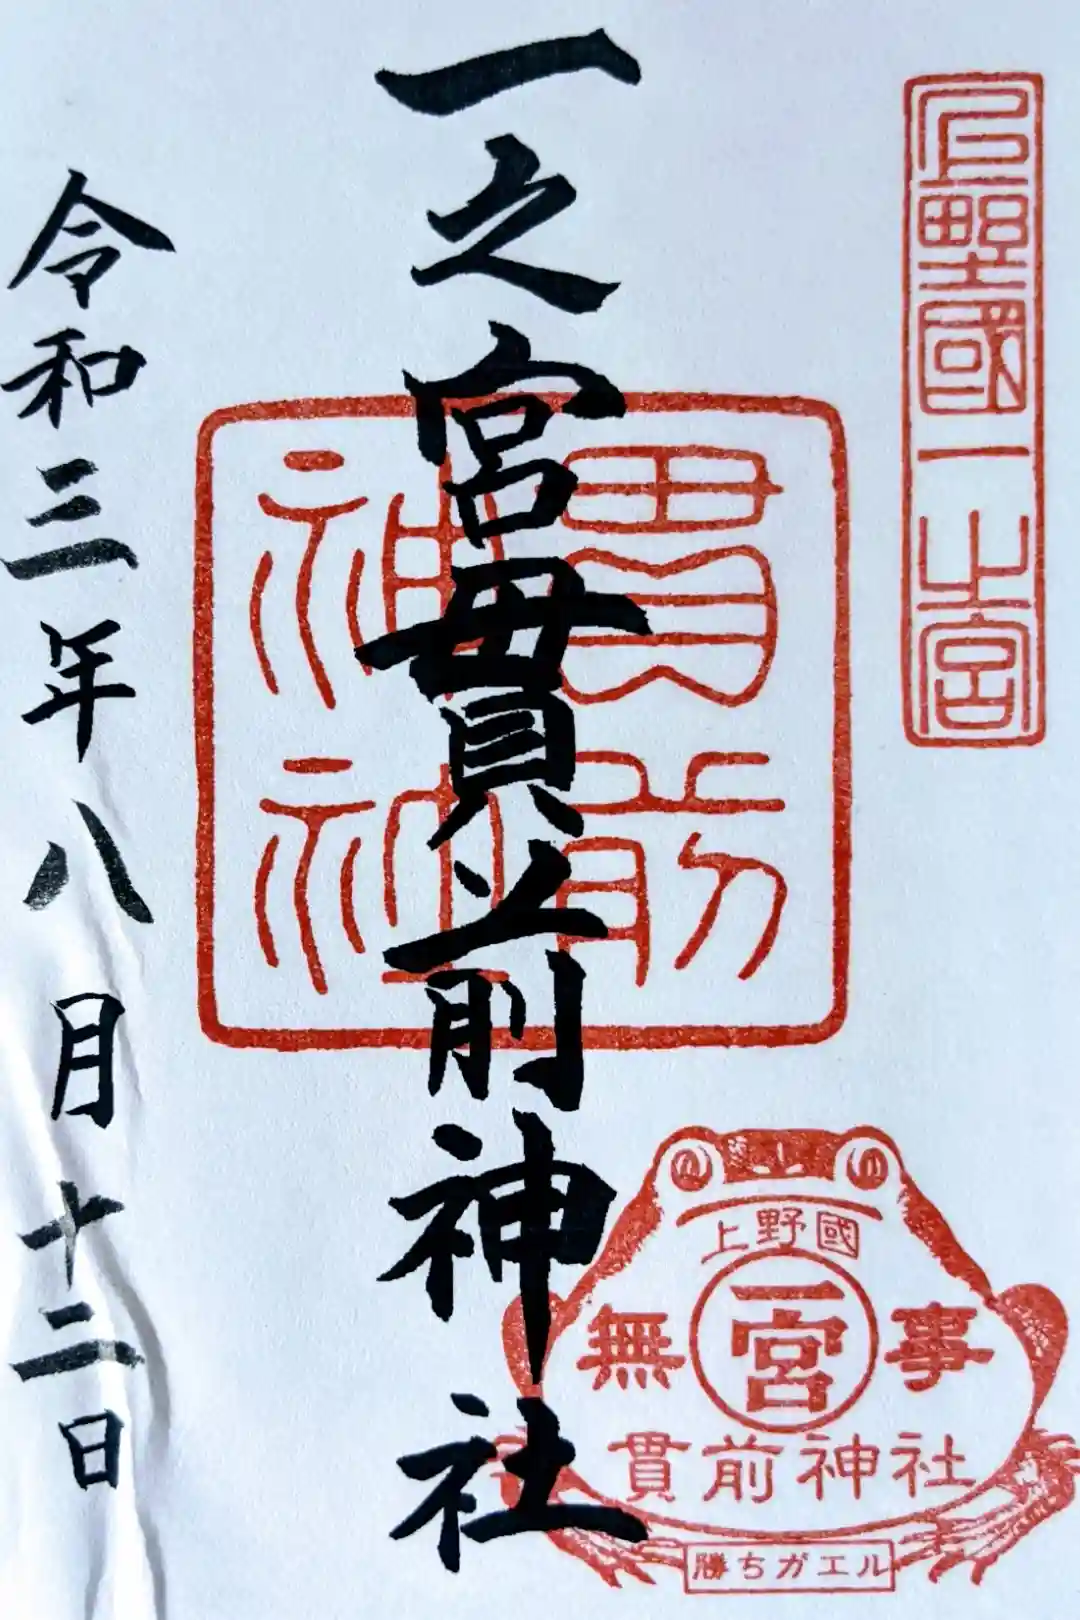 上野國一之宮
一之宮貫前神社
貫前
神社
令和三年八月十二日
上野國
無事
一宮
貫前神社
勝ちガエル